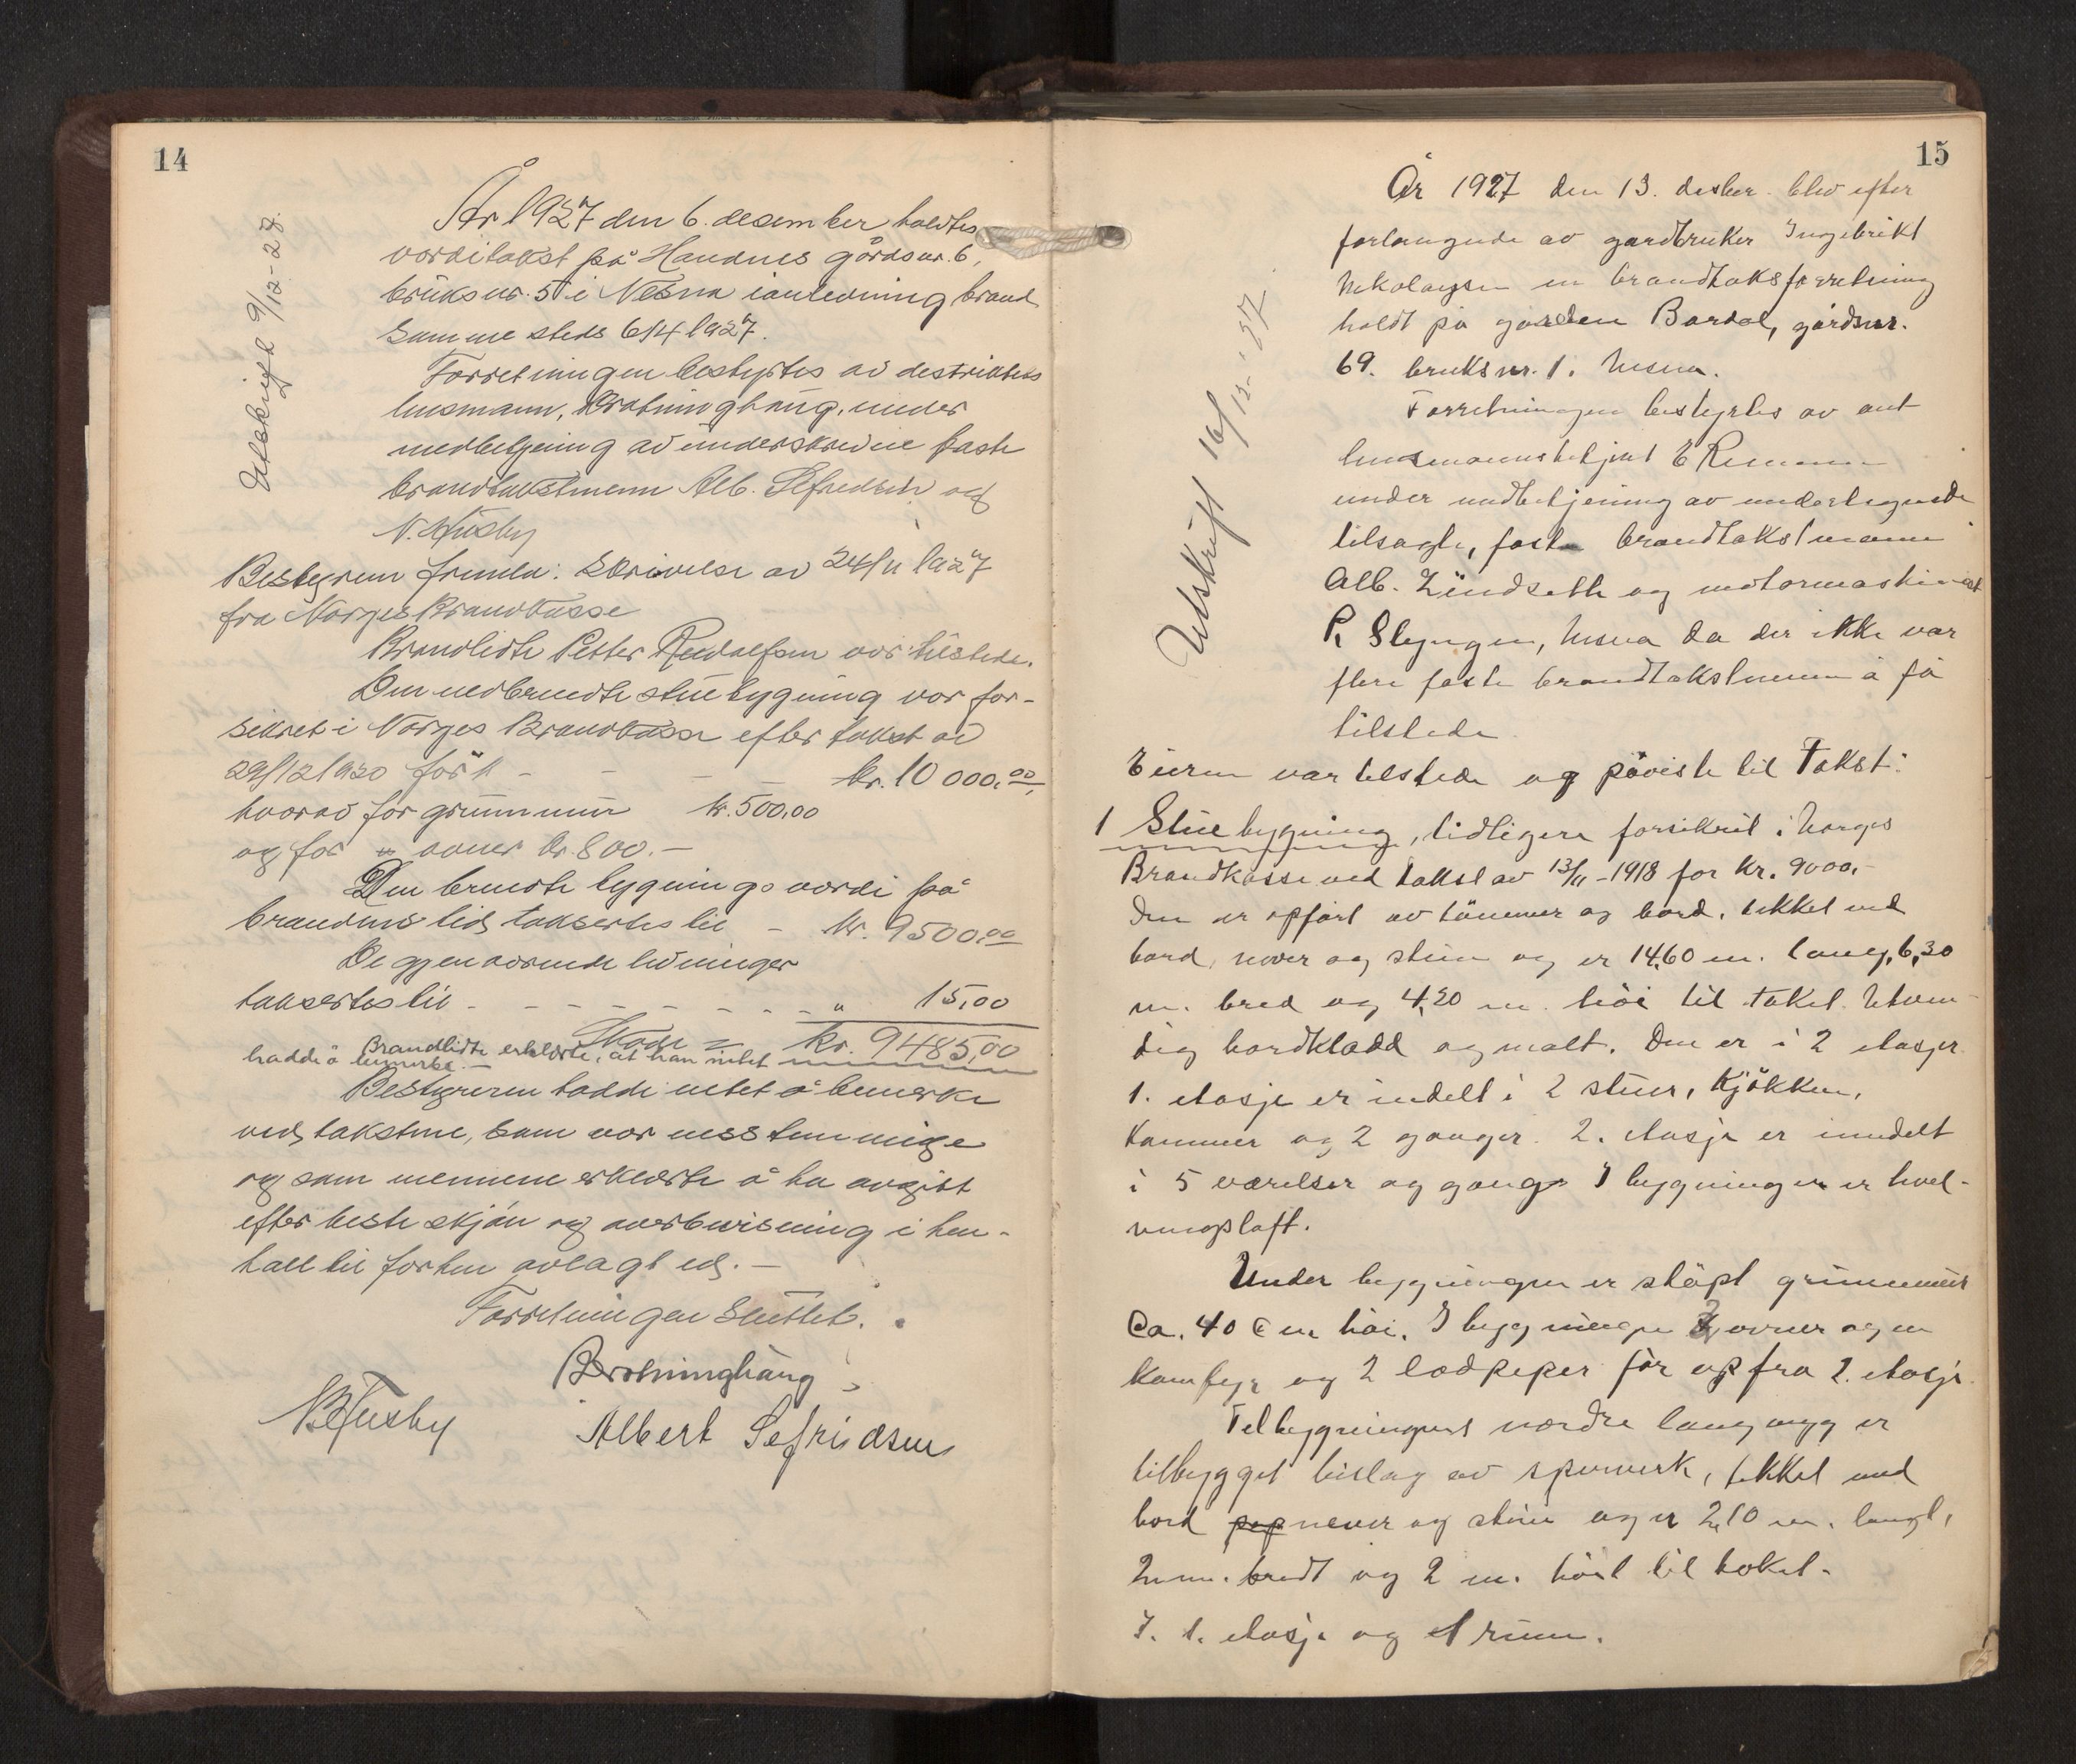 14
Utskrift 9/12-28.
År 1927 den 6. desember holdtes
verditakst på Handnes gårdsnr. 6,
bruksnr. 5 i Nesna i anledning brand
samme steds 6/4 1927.
Forretningen bestyrtes av distriktets
lensmann, Brotninghaug, under
medbetjening av underskrevne faste
brandtakstmenn Alb. Sefridsen og
N. Husby
Bestyreren fremla: Skrivelse av 24/11 1927
fra Norges Brandkasse
Brandlidte Petter Rudolfsen var tilstede.
Den nedbrendte stuebygning var for-
sikret i Norges Brandkasse efter takst av
29/12 1920 for kr. 10 000.00
hvorav for grunnmur kr. 500,00
og for " ovner kr. 800.-
Den brendte bygnings verdi på
brandens tid taksertes til - kr. 9500.00
De gjenværende levninger
taksertes til - - - - - - - " 15,00
Skade = kr. 9485,00
Brandlidte erklærte, at han intet
hadde å bemerke.-
Bestyreren hadde intet å bemerke
ved taksten, som var enstemmige
og som mennene erklærte å ha avgitt
efter beste skjøn og overbevisning i hen-
hall til forhen avlagt ed. -
Forretningen sluttet.
Brotninghaug
N Husby
Albert Sefridsen
15
Utskrift 16/12-'27.
År 1927 den 13. desber. blev efter
forlangende av gardbruker Ingebrikt
Nikolaysen en brandtaksforretning
holdt på garden Bardal, gårdsnr.
69. bruksnr. 1. Nesna.
Forretningen bestyrtes av aut
lensmannsbetjent E Remann
under medbetjening av undertegnede
tilsagte, faste brandtakstmann
Alb. Zündseth og motormaskinist
P. Slyngen, Nesna da der ikke var
flere faste brandtakstmenn å få
tilstede
Eieren var tilstede og påviste til Takst:
1 Stuebygning, tidligere forsikret i Norges
Brandkasse ved takst av 13/11-1918 for kr. 9000.-
Den er opført av tømmer og bord, tekket med
bord, never og stein og er 14,60 m. lang, 6,30
m. bred og 4,20 m. høi til taket. Utven-
dig bordkladd og malt. Den er i 2 etasjer
1. etasje er indelt i 2 stuer, kjøkken,
kammer og 2 ganger. 2. etasje er inndelt
i 5 værelser og gang. I bygningen er hvel-
vingsloft.
Under bygningen er støpt grunnmur
Ca. 40 Cm høi. I bygningen 3 ovner og en
komfyr og 2 lodpiper før op fra 1. etasje.
Til bygningens nordre langvegg er
tilbygget bislag av sperverk, tekket med
bord pap never og stein og er 2,10 m. langt,
2 m. bredt og 2 m. høit til taket.
I. 1. etasje og 1 rum.